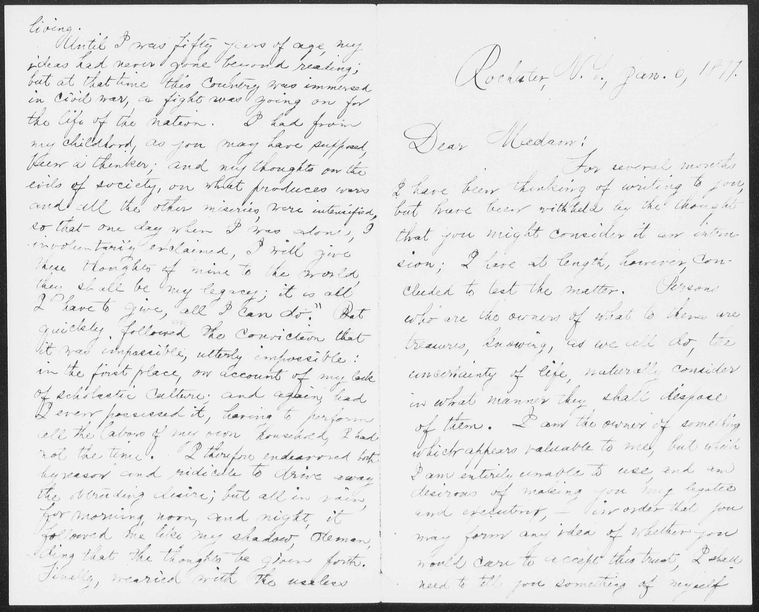 Rochester, N.Y., Jan. 1877.
Dear Medam:
For several months
I have been thinking of writing to you,
but have been withheld by the thought
that you might consider it an intru-
sion; I have at length, however, con-
cluded to test the matter. Persons
who are the owners of what to them are
treasures, knowing, as we all do, the
uncertainty of life, naturally consider
in what manner they shall dispose
of them. I am the owner of something
which appears valuable to me, but which
I am entirely unable to use, and am
desirous of making you my legatee
and executor, — in order that you
may form any idea of whether you
would care to accept this trust, I shall
need to tell you something of myself
living.
Until I was fifty years of age, my
ideas had never gone beyond reading;
but at that time this country was immersed
in civil war, a fight was going on for
the life of the nation. I had from
my childhood, as you may have supposed,
been a thinker; and my thoughts on the
evils of society, on what produces wars
and all the other miseries were intensified,
so that one day when I was alone, I
involuntarily exclaimed, I will give
these thoughts of mine to the world
they shall be my legacy; it is all
I have to give, all I can do." But
quickly followed the conviction that
it was impossible, utterly impossible:
in the first place, on account of my lack
of scholastic culture; and again, had
I even possessed it, having to perform
all the labors of my own household, I had
not the time. I therefore endeavored both
by reason and ridicule to drive away
the obtruding desire; but all in vain,
for morning, noon, and night, it
followed me like my shadow, deman-
ding that the thoughts be given forth.
Finally, wearied with the useless